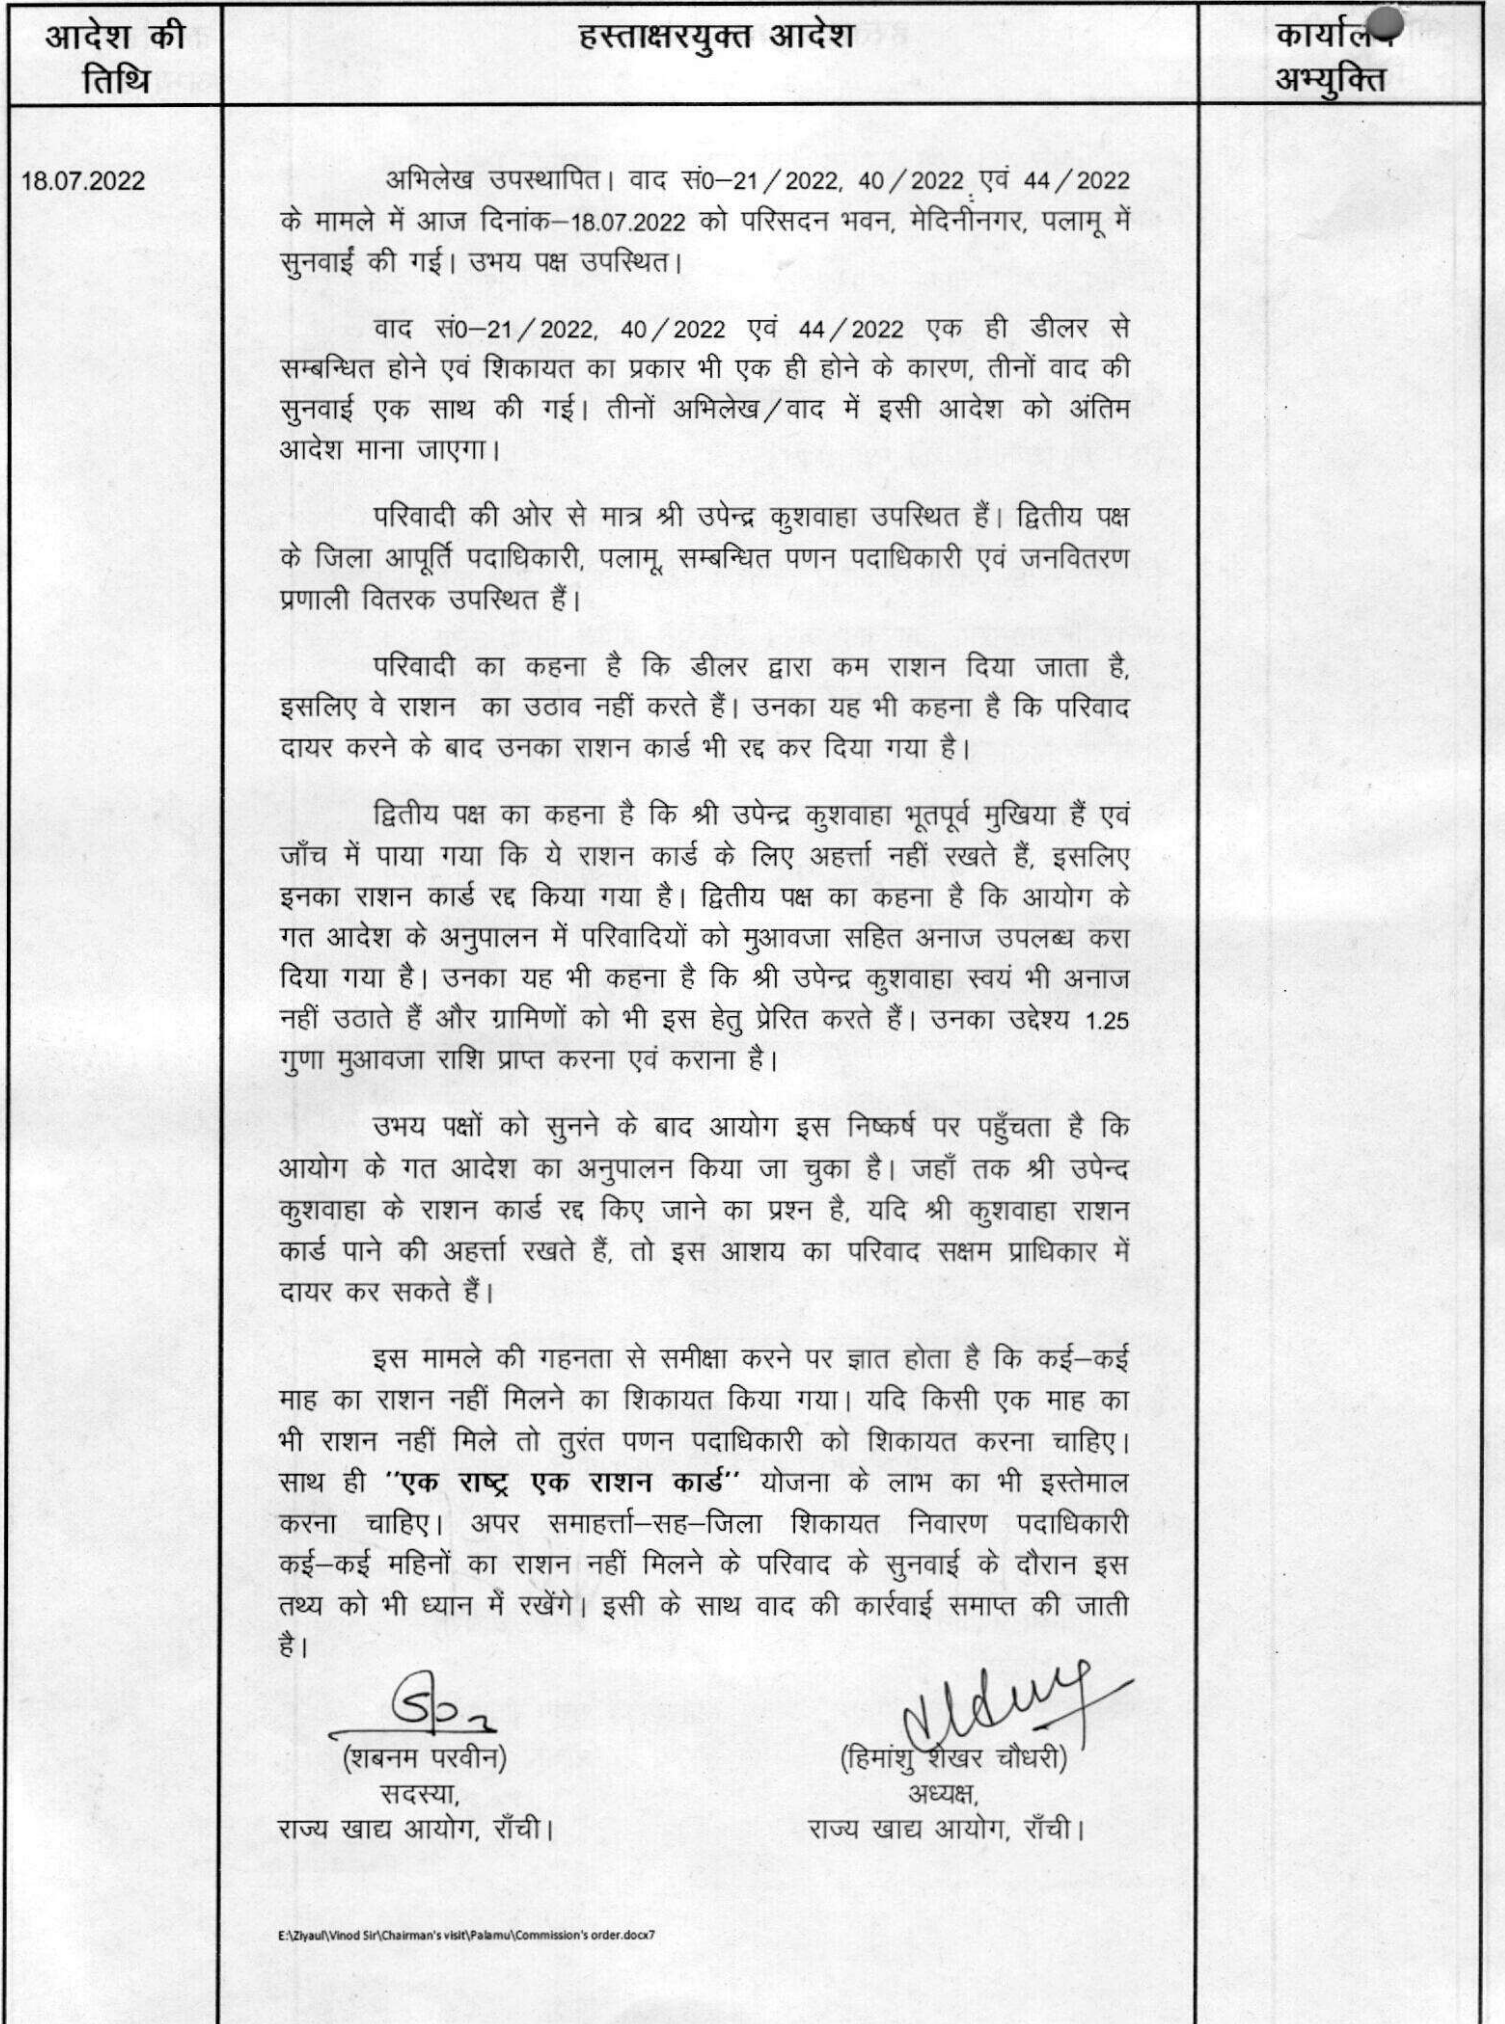 आदेश की
तिथि
हस्ताक्षरयुक्त आदेश
कार्यालय
अभ्युक्ति
18.07.2022
अभिलेख उपस्थापित। वाद सं0–21/2022, 40/2022 एवं 44/2022
के मामले में आज दिनांक–18.07.2022 को परिसदन भवन, मेदिनीनगर, पलामू में
सुनवाई की गई। उभय पक्ष उपस्थित।
वाद सं0–21/2022, 40/2022 एवं 44/2022 एक ही डीलर से
सम्बन्धित होने एवं शिकायत का प्रकार भी एक ही होने के कारण, तीनों वाद की
सुनवाई एक साथ की गई। तीनों अभिलेख/वाद में इसी आदेश को अंतिम
आदेश माना जाएगा।
परिवादी की ओर से मात्र श्री उपेन्द्र कुशवाहा उपस्थित हैं। द्वितीय पक्ष
के जिला आपूर्ति पदाधिकारी, पलामू, सम्बन्धित पणन पदाधिकारी एवं जनवितरण
प्रणाली वितरक उपस्थित हैं।
परिवादी का कहना है कि डीलर द्वारा कम राशन दिया जाता है,
इसलिए वे राशन का उठाव नहीं करते हैं। उनका यह भी कहना है कि परिवाद
दायर करने के बाद उनका राशन कार्ड भी रद्द कर दिया गया है।
द्वितीय पक्ष का कहना है कि श्री उपेन्द्र कुशवाहा भूतपूर्व मुखिया हैं एवं
जाँच में पाया गया कि ये राशन कार्ड के लिए अहर्त्ता नहीं रखते हैं, इसलिए
इनका राशन कार्ड रद्द किया गया है। द्वितीय पक्ष का कहना है कि आयोग के
गत आदेश के अनुपालन में परिवादियों को मुआवजा सहित अनाज उपलब्ध करा
दिया गया है। उनका यह भी कहना है कि श्री उपेन्द्र कुशवाहा स्वयं भी अनाज
नहीं उठाते हैं और ग्रामिणों को भी इस हेतु प्रेरित करते हैं। उनका उद्देश्य 1.25
गुणा मुआवजा राशि प्राप्त करना एवं कराना है।
उभय पक्षों को सुनने के बाद आयोग इस निष्कर्ष पर पहुँचता है कि
आयोग के गत आदेश का अनुपालन किया जा चुका है। जहाँ तक श्री उपेन्द
कुशवाहा के राशन कार्ड रद्द किए जाने का प्रश्न है, यदि श्री कुशवाहा राशन
कार्ड पाने की अहर्त्ता रखते हैं, तो इस आशय का परिवाद सक्षम प्राधिकार में
दायर कर सकते हैं।
इस मामले की गहनता से समीक्षा करने पर ज्ञात होता है कि कई–कई
माह का राशन नहीं मिलने का शिकायत किया गया। यदि किसी एक माह का
भी राशन नहीं मिले तो तुरंत पणन पदाधिकारी को शिकायत करना चाहिए।
साथ ही ''एक राष्ट्र एक राशन कार्ड'' योजना के लाभ का भी इस्तेमाल
करना चाहिए। अपर समाहर्त्ता–सह–जिला शिकायत निवारण पदाधिकारी
कई–कई महिनों का राशन नहीं मिलने के परिवाद के सुनवाई के दौरान इस
तथ्य को भी ध्यान में रखेंगे। इसी के साथ वाद की कार्रवाई समाप्त की जाती
है।
(शबनम परवीन)
सदस्या,
राज्य खाद्य आयोग, राँची।
(हिमांशु शेखर चौधरी)
अध्यक्ष,
राज्य खाद्य आयोग, राँची।
E:\Ziyaul\Vinod Sir\Chairman's visit\Palamu\Commission's order.docx7